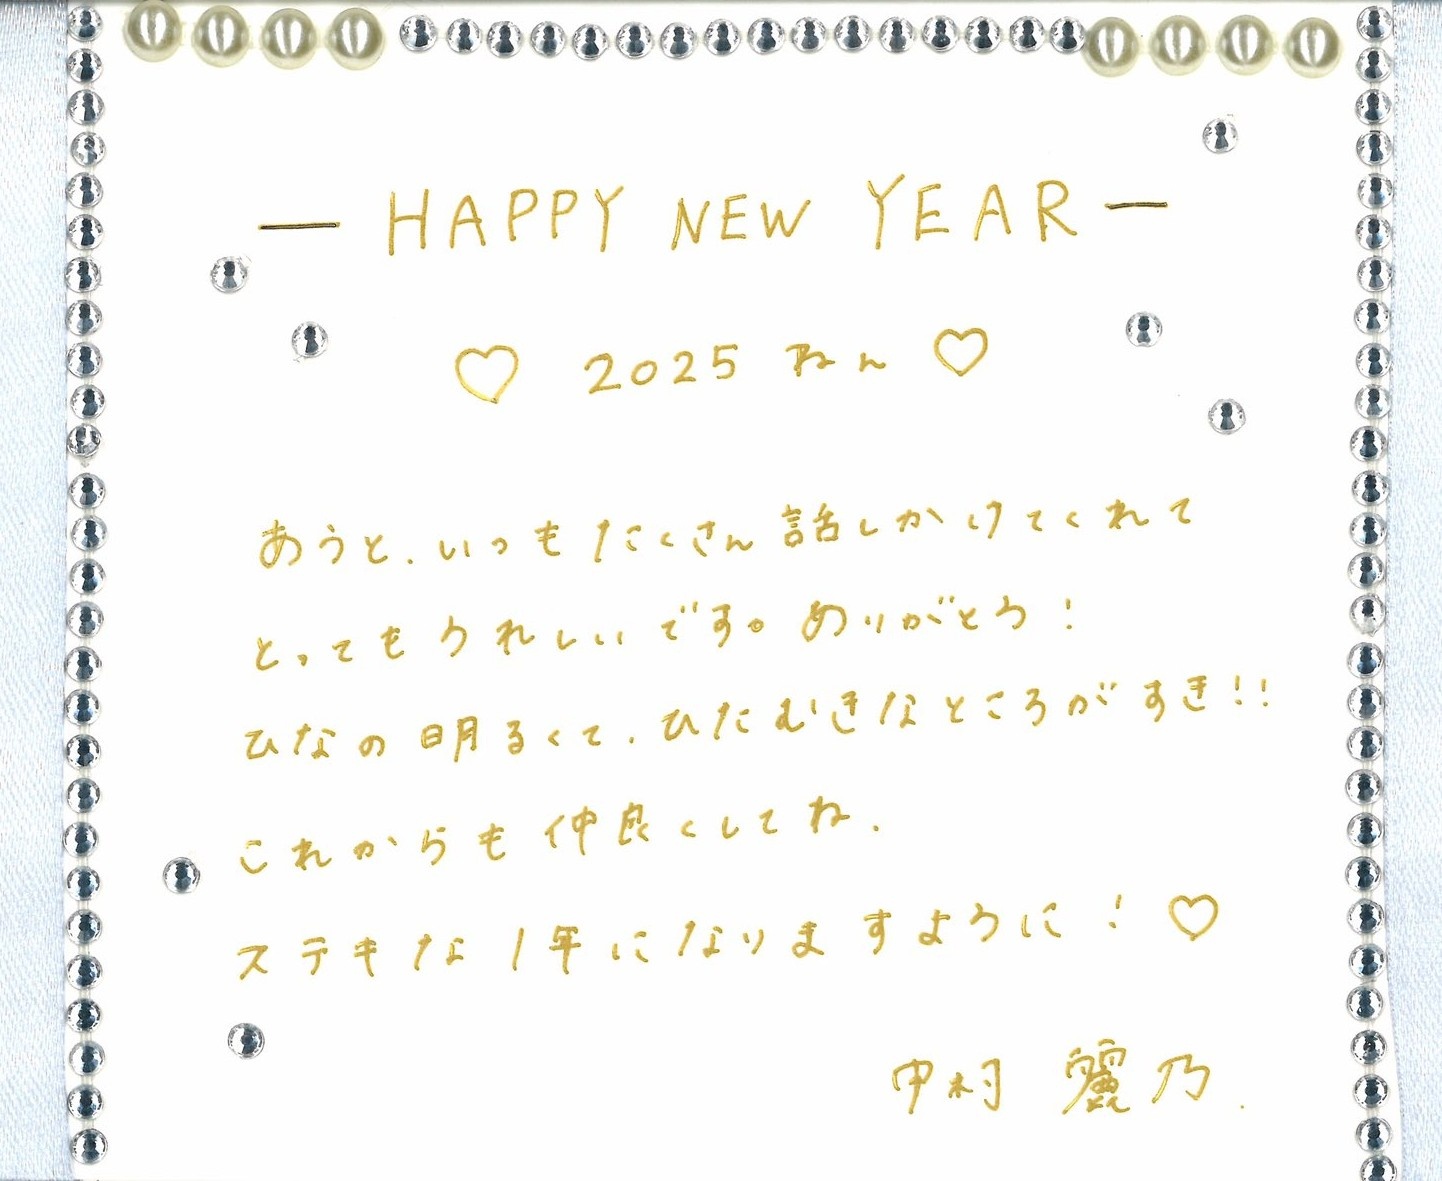 — HAPPY NEW YEAR —
♡ 2025 ねん ♡
あうと、いつもたくさん話しかけてくれて
とってもうれしいです。ありがとう!
ひなの明るくて、ひたむきなところがすき!!
これからも仲良くしてね.
ステキな1年になりますように!♡
中村 麗乃.